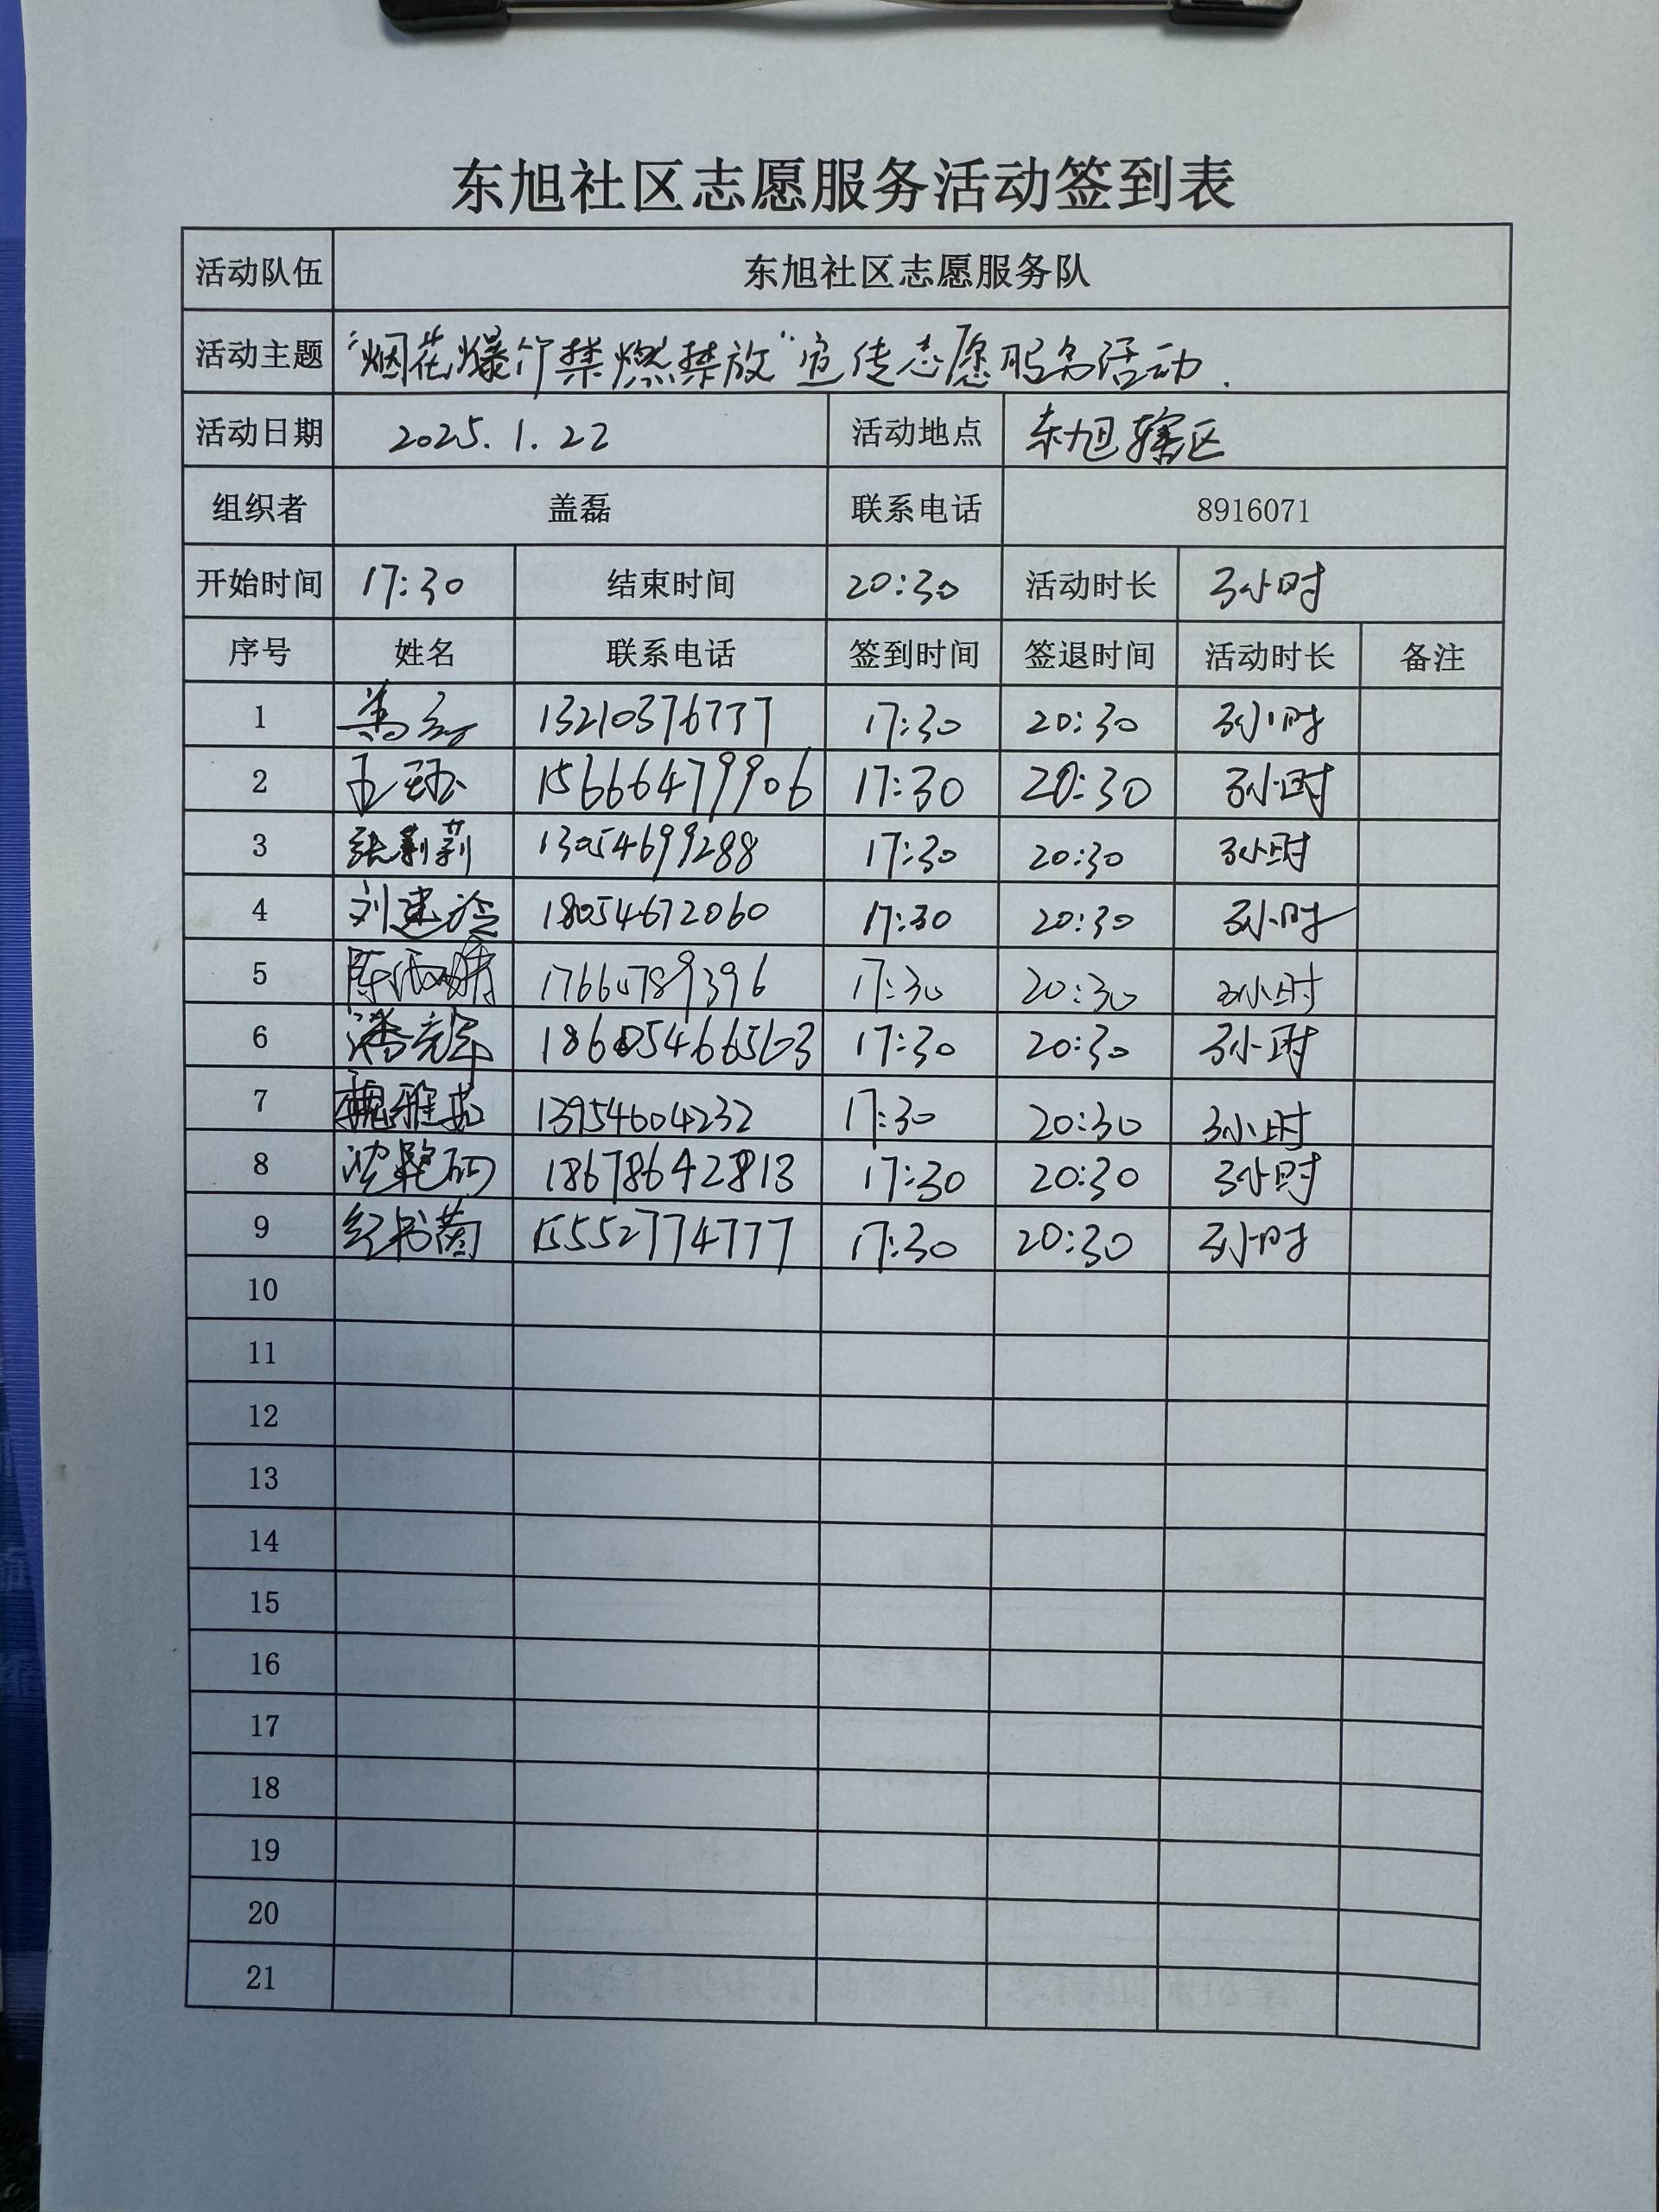 东旭社区志愿服务活动签到表
活动队伍 东旭社区志愿服务队
活动主题 “烟花爆竹禁燃禁放”宣传志愿服务活动.
活动日期 2025.1.22 活动地点 东旭辖区
组织者 盖磊 联系电话 8916071
开始时间 17:30 结束时间 20:30 活动时长 3小时
序号 姓名 联系电话 签到时间 签退时间 活动时长 备注
1 盖磊 13210376777 17:30 20:30 3小时
2 15666479906 17:30 20:30 3小时
3 张莉莉 13054699288 17:30 20:30 3小时
4 刘建 18054672060 17:30 20:30 3小时
5 陈雨晴 17660789396 17:30 20:30 3小时
6 潘 17:30 20:30 3小时
7 魏雅 13954604232 17:30 20:30 3小时
8 沈艳丽 18678642813 17:30 20:30 3小时
9 纪书茵 15552774777 17:30 20:30 3小时
10
11
12
13
14
15
16
17
18
19
20
21